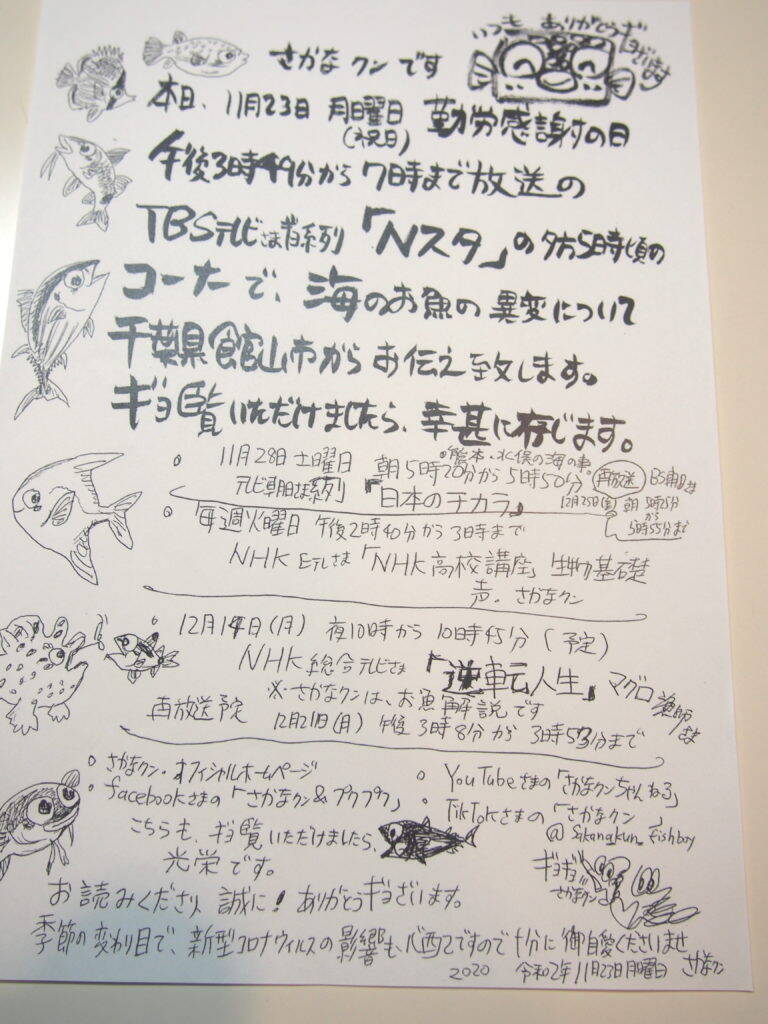 いつも ありがとうギョざいます
さかなクンです
本日、11月23日 月曜日 勤労感謝の日
(祝日)
午後3時49分から7時まで放送の
TBSテレビさま系列「Nスタ」の夕方5時頃の
コーナーで、海のお魚の異変について
千葉県館山市からお伝え致します。
ギョ覧いただけましたら、幸甚に存じます。
・熊本・水俣の海の事。
・11月28日土曜日 朝5時20分から5時50分
テレビ朝日さま系列 「日本のチカラ」
再放送 BS朝日さま
12月25日(金) 朝5時25分
から
5時55分まで
・毎週火曜日 午後2時40分から3時まで
NHK Eテレさま「NHK高校講座」生物基礎
声。さかなクン
・12月14日(月) 夜10時から10時45分(予定)
NHK総合テレビさま「逆転人生」マグロ漁師さま
※さかなクンは、お魚解説です
再放送予定 12月21日(月) 午後3時8分から3時53分まで
・さかなクン・オフィシャルホームページ
・facebookさまの「さかなクン&プクプク」
・YouTubeさまの「さかなクンちゃんねる」
・TikTokさまの「さかなクン」
@sakanakun_fishboy
こちらも、ギョ覧いただけましたら、
光栄です。
ギョギョ!!!
さかなクン
お読みくださり、誠に!ありがとうギョざいます。
季節の変わり目で、新型コロナウィルスの影響も心配ですので十分に御自愛くださいませ
2020 令和2年11月23日月曜日 さかなクン